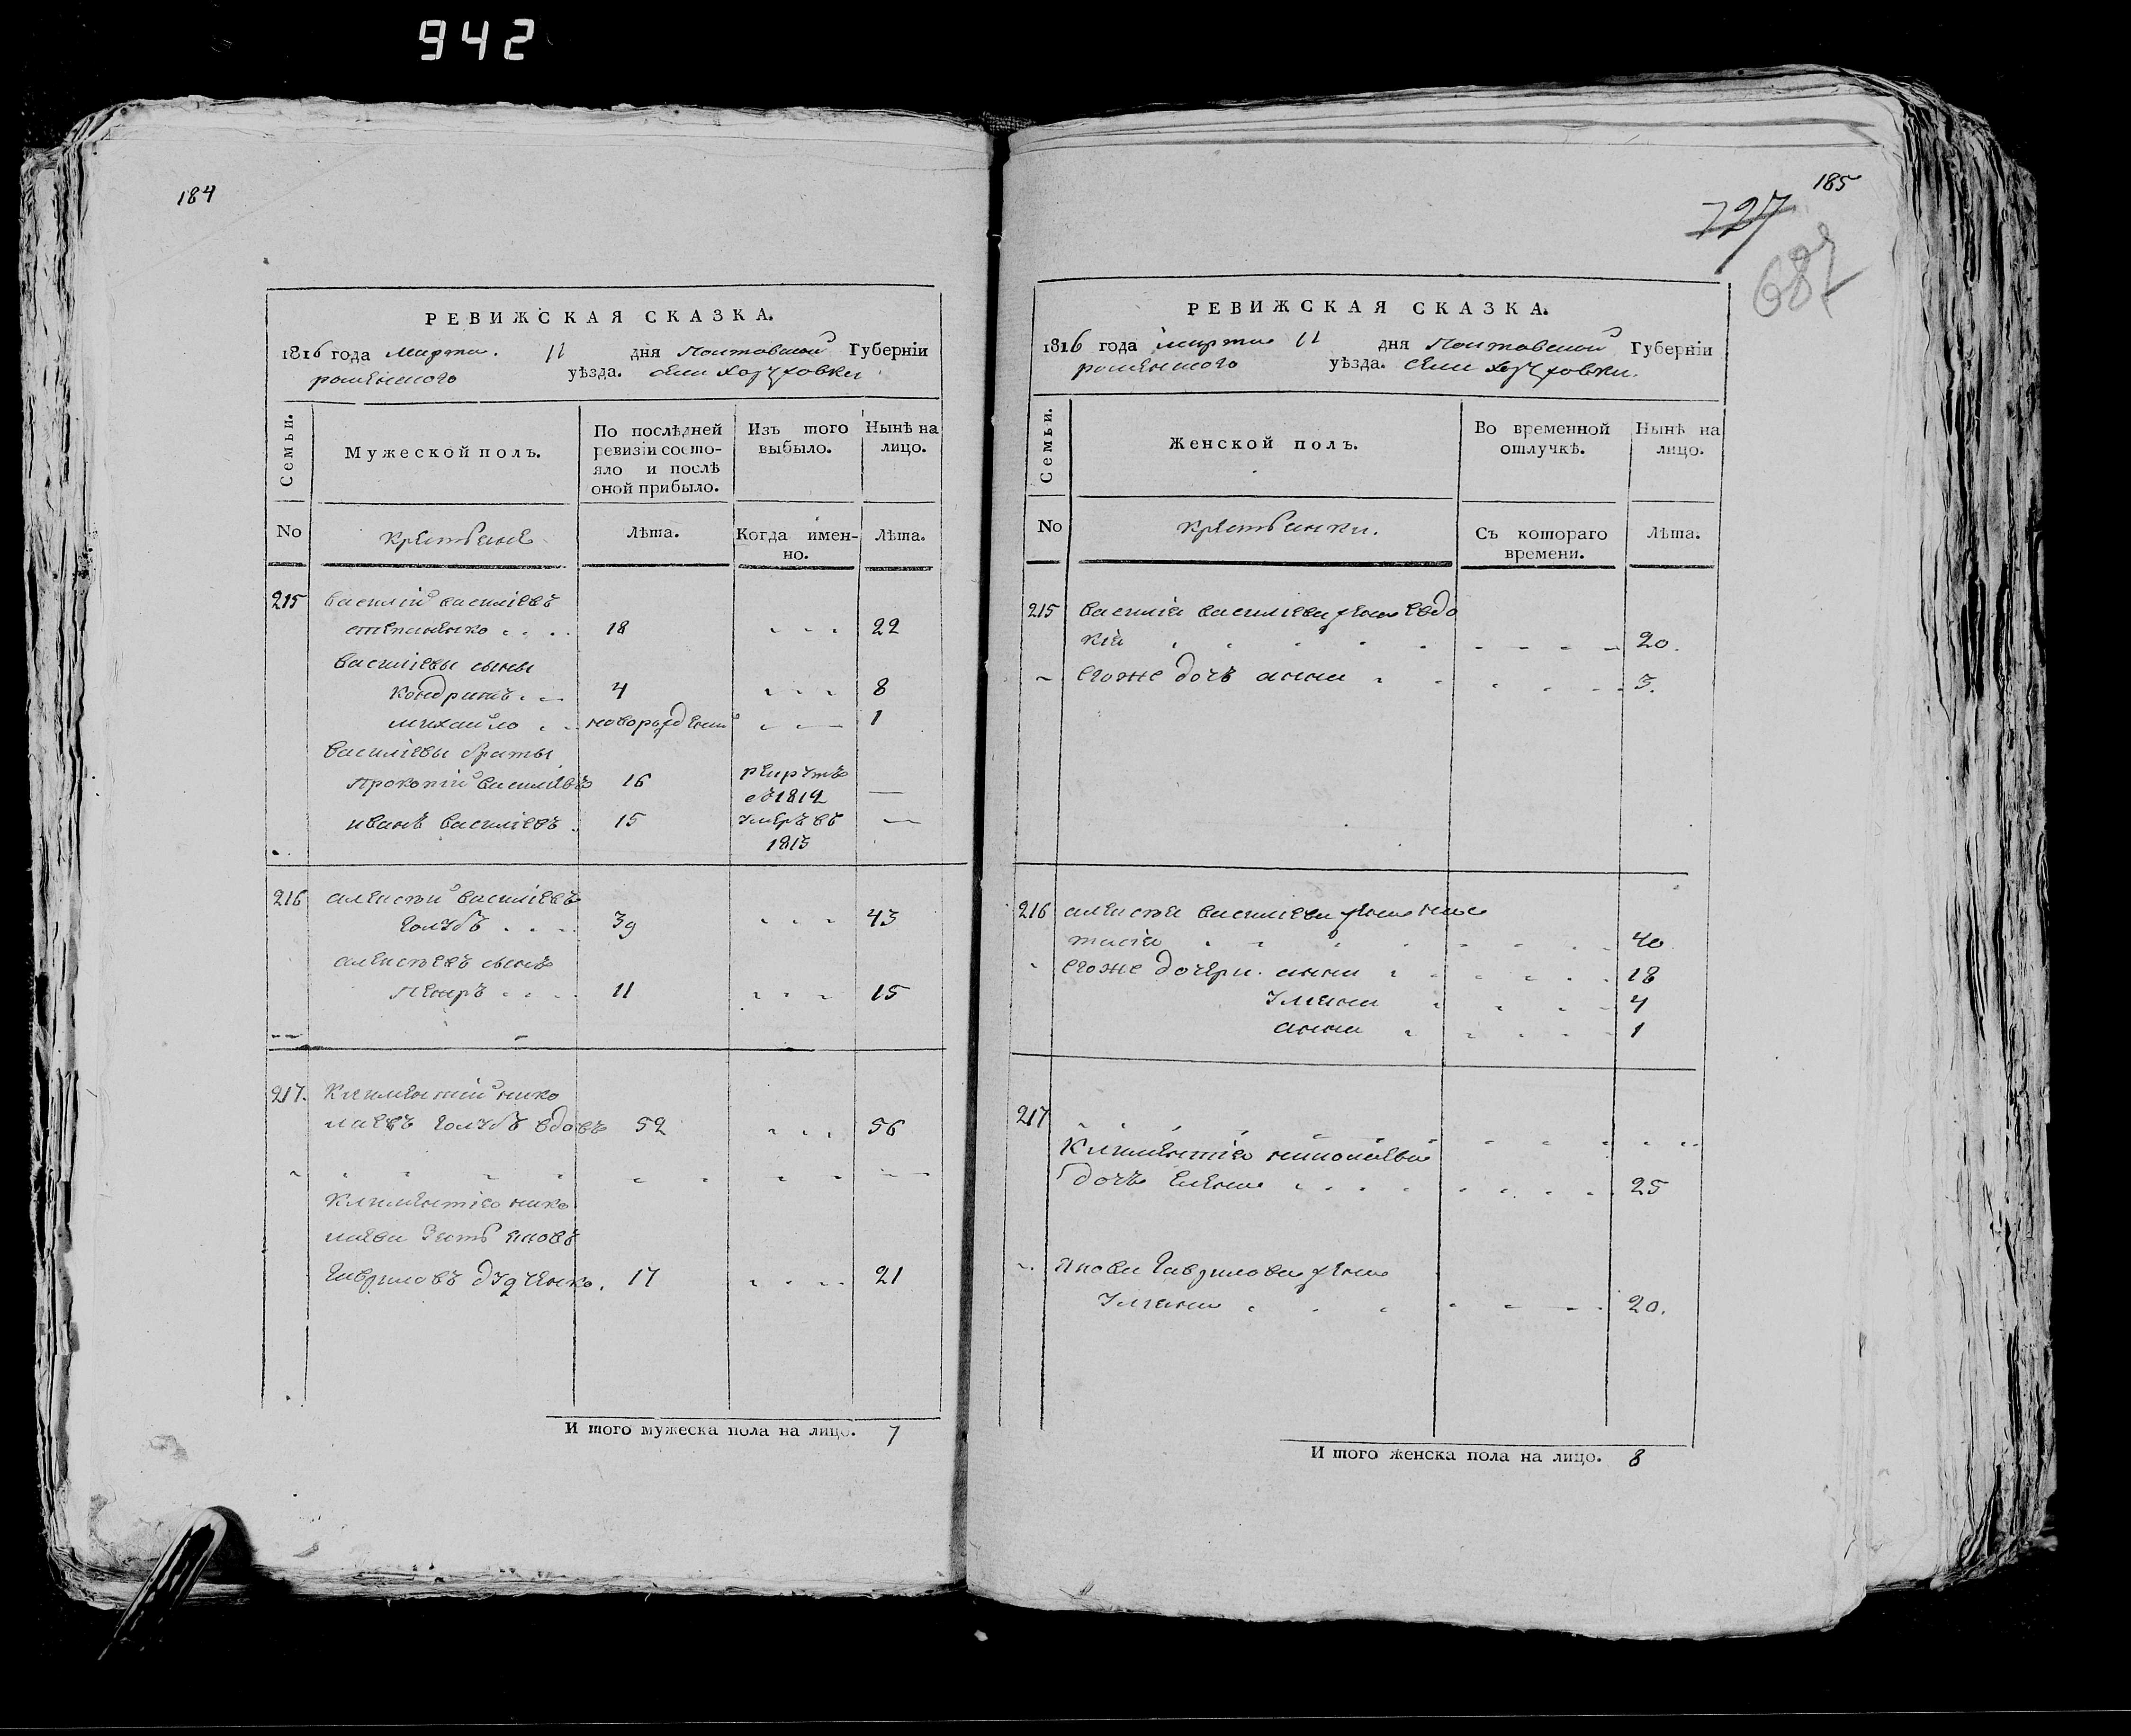 942
184
РЕВИЖСКАЯ СКАЗКА.
1816 года марта. 11 дня Полтавской Губернїи
роменского уѣзда. села
Семьи.
Мужеской полъ.
По послѣдней ревизїи состояло и послѣ оной прибыло.
Изъ того выбыло.
Нынѣ на лицо.
No
крестьяне
Лѣта.
Когда именно.
Лѣта.
215 василїй василїевъ
степаненко . . . . 18 . . . 22
василїевы сыны
кондратъ . . 4 . . . 8
михайло . . новорожденный 1
василїевы братья
прокопїй василїевъ 16 рекрутъ
въ 1812 —
иванъ василїевъ . 15 умеръ въ —
1815
216 алексѣй василїевъ
голубъ . . . . 39 . . . 43
алексѣевъ сынъ
петръ . . . . 11 . . . 15
217. климентїй нико
лаевъ голубъ вдовъ 52 . . . 56
климентїя нико
лаева зять яковъ
гавриловъ . 17 . . . . 21
И того мужеска пола на лицо. 7
185
727
687
РЕВИЖСКАЯ СКАЗКА.
1816 года марта 11 дня Полтавской Губернїи
роменского уѣзда. села
Семьи.
Женской полъ.
Во временной отлучкѣ.
Нынѣ на лицо.
No
крестьянки.
Съ котораго времени.
Лѣта.
215 василїя василїева жена евдо
кїя . . . . . . . . . 20.
егоже дочъ анна . . . . . . 3.
216 алексѣя василїева жена нас
тасїя . . . . . . . . 40
егоже дочери. анна . . . . . 18
улияна . . . . 4
анна . . . . . 1
217
климентїя николаева
дочъ елена . . . . . . . . 25
якова гаврилова жена
улияна . . . . . . . 20.
И того женска пола на лицо. 8